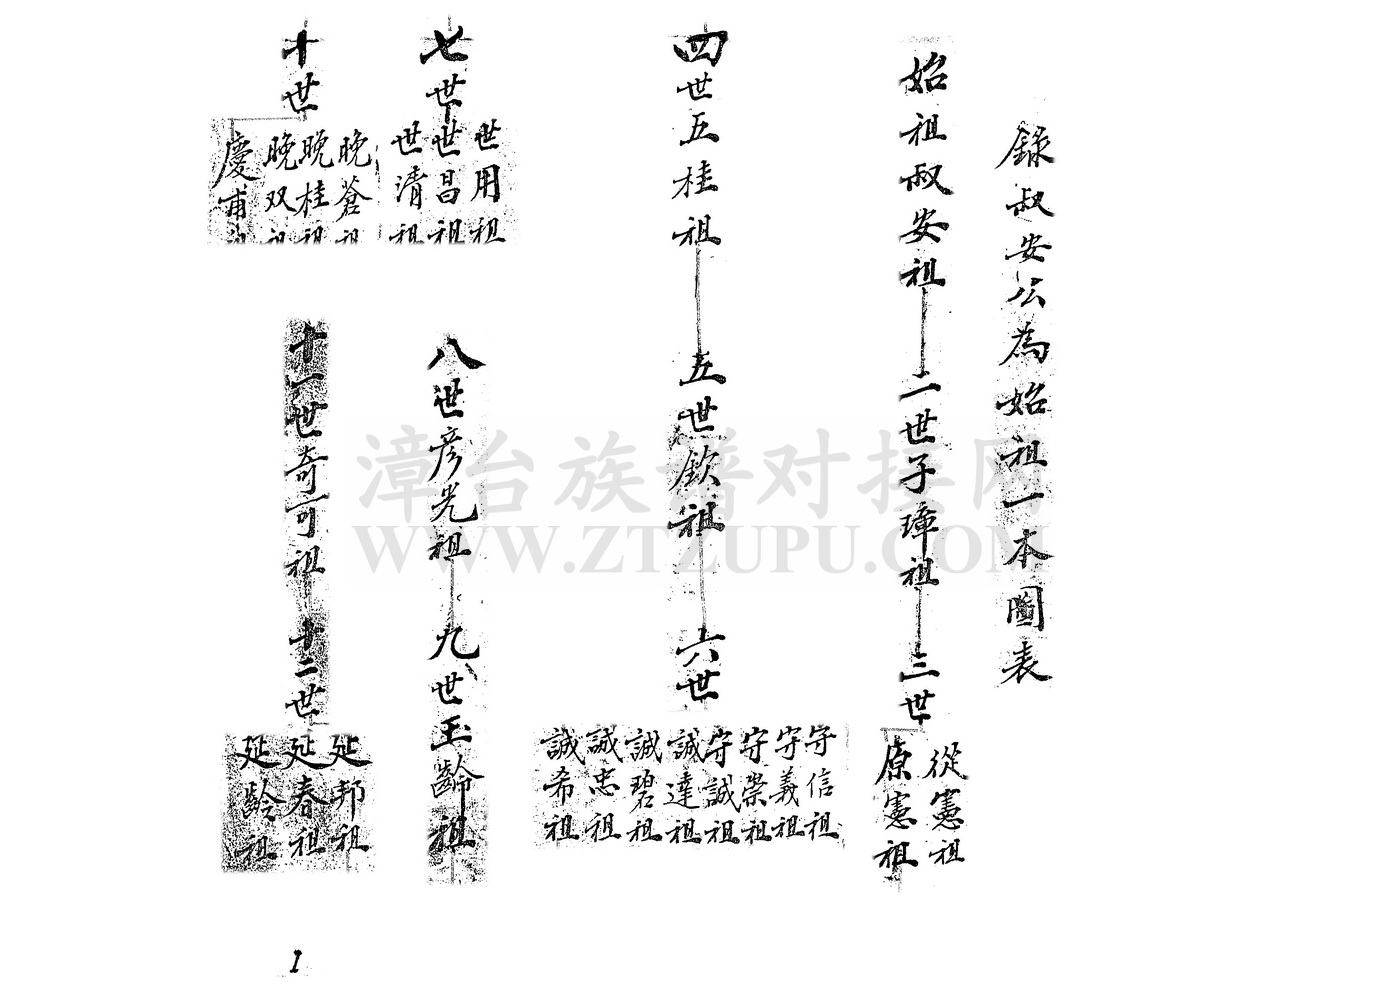 錄叔安公為始祖一本圖表
始祖叔安祖
二世子璋祖
三世
從憲祖
原憲祖
四世五桂祖
五世欽祖
六世
守信祖
守義祖
守崇祖
守誠祖
誠達祖
誠碧祖
誠忠祖
誠希祖
七世
世用祖
世昌祖
世清祖
八世彦光祖
九世玉齡祖
十世
晚蒼祖
晚桂祖
晚双祖
慶甫祖
十一世奇可祖
十二世
延邦祖
延春祖
延齡祖
1
漳台族谱对接网
WWW.ZTZUPU.COM